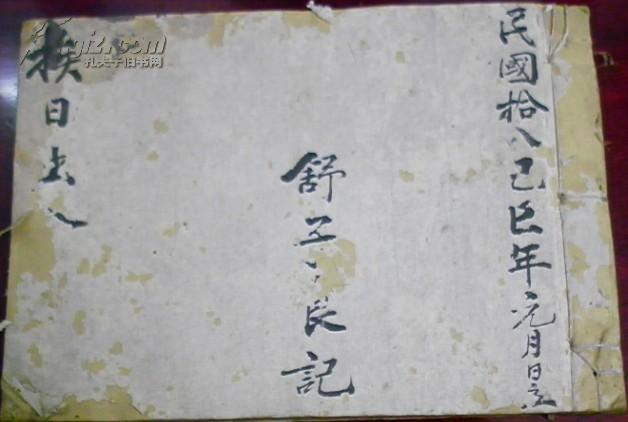 民國拾八己巳年元月日立
舒
長記
挨日出入
孔夫子旧书网